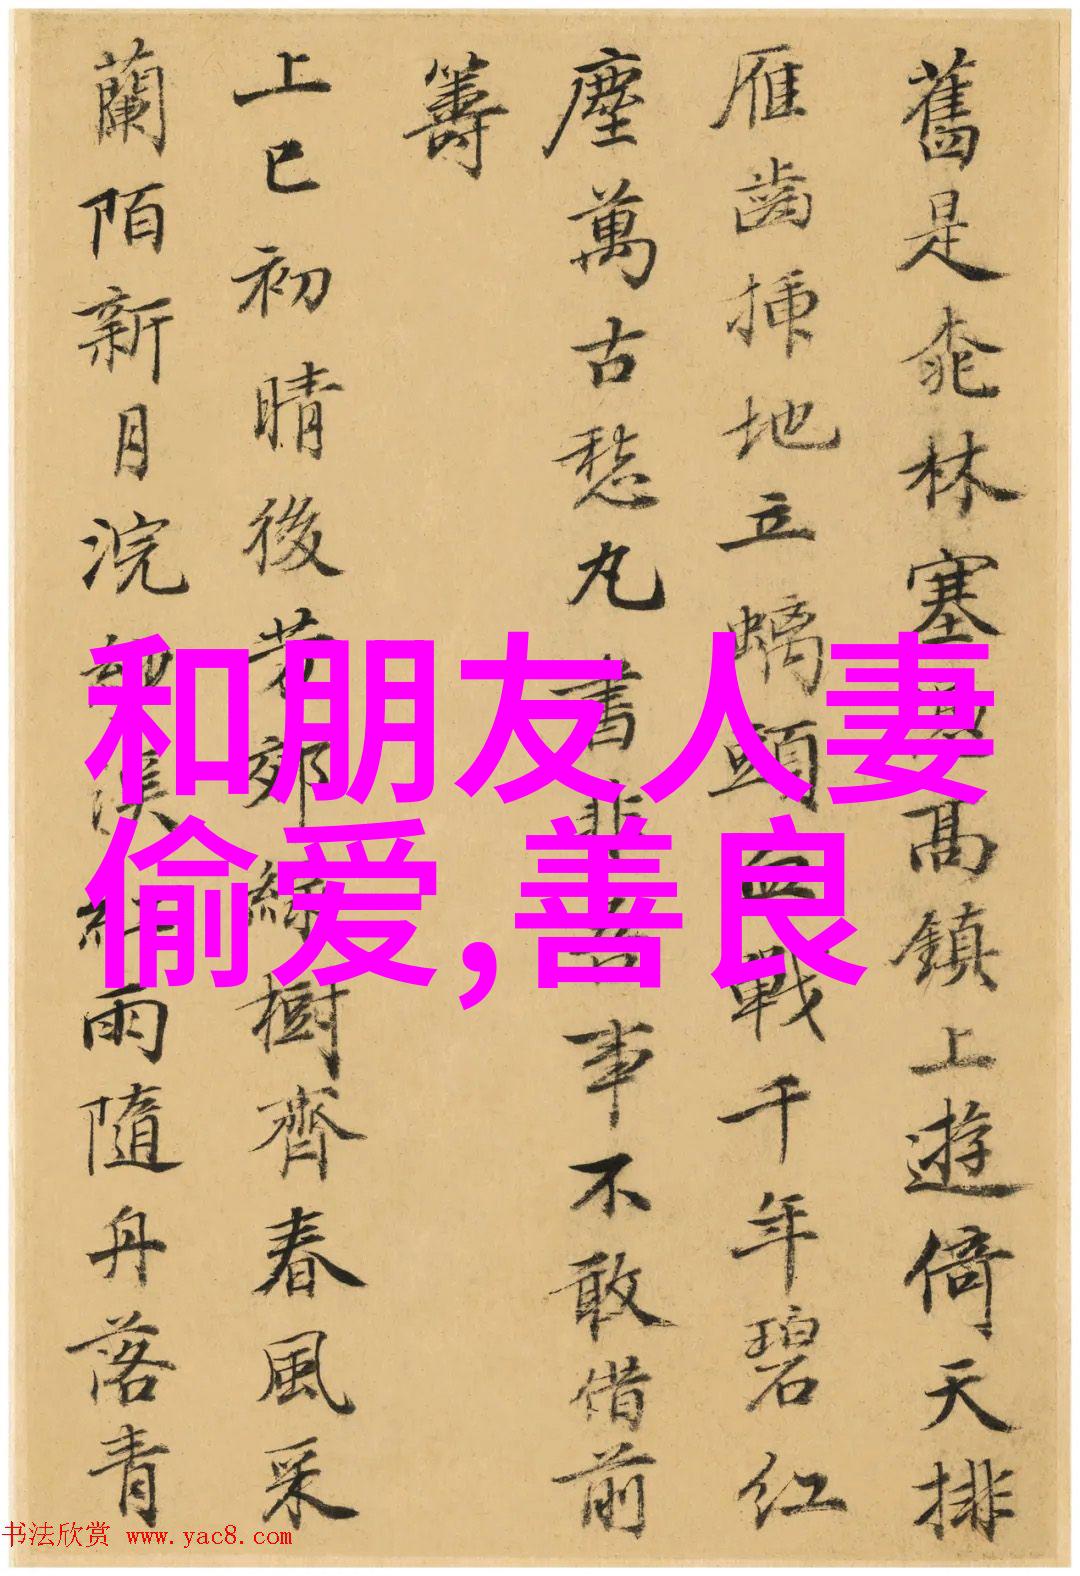 舊是桃林塞無高鎮上遊倚天排
雁齒插地立螭頭血戰千年碧紅
塵萬古愁丸書非吾事不敢借前
籌
上巳初晴後芳郊綠樹齊春風采
蘭陌新月浣溪紅雨隨舟落青
和朋友人妻
偷爱,善良
书法欣赏 www.yac8.com